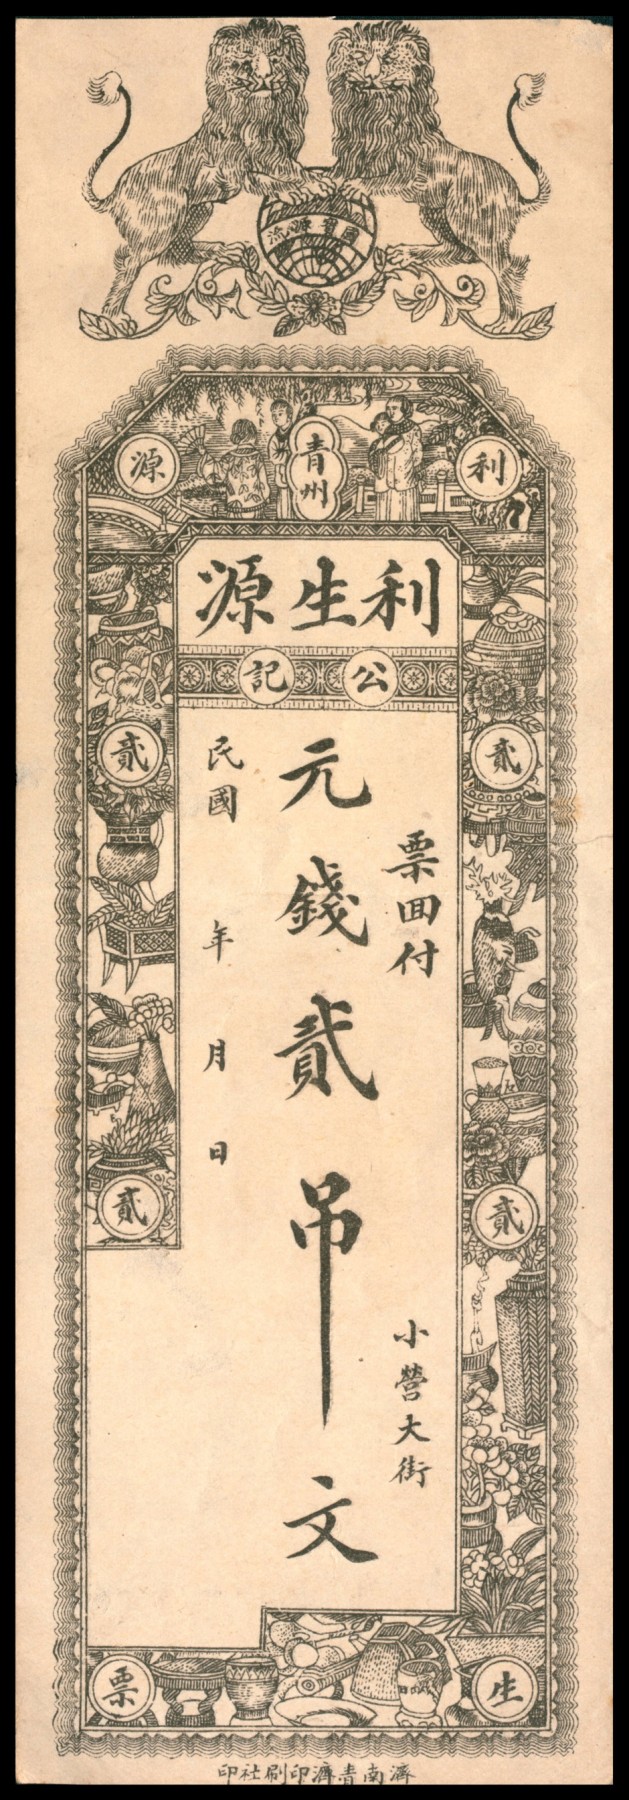 青州
利
源
利生源
公記
貳
貳
票面付
小營大街
元錢貳吊文
民國 年 月 日
貳
貳
生
票
濟南青濟印刷社印